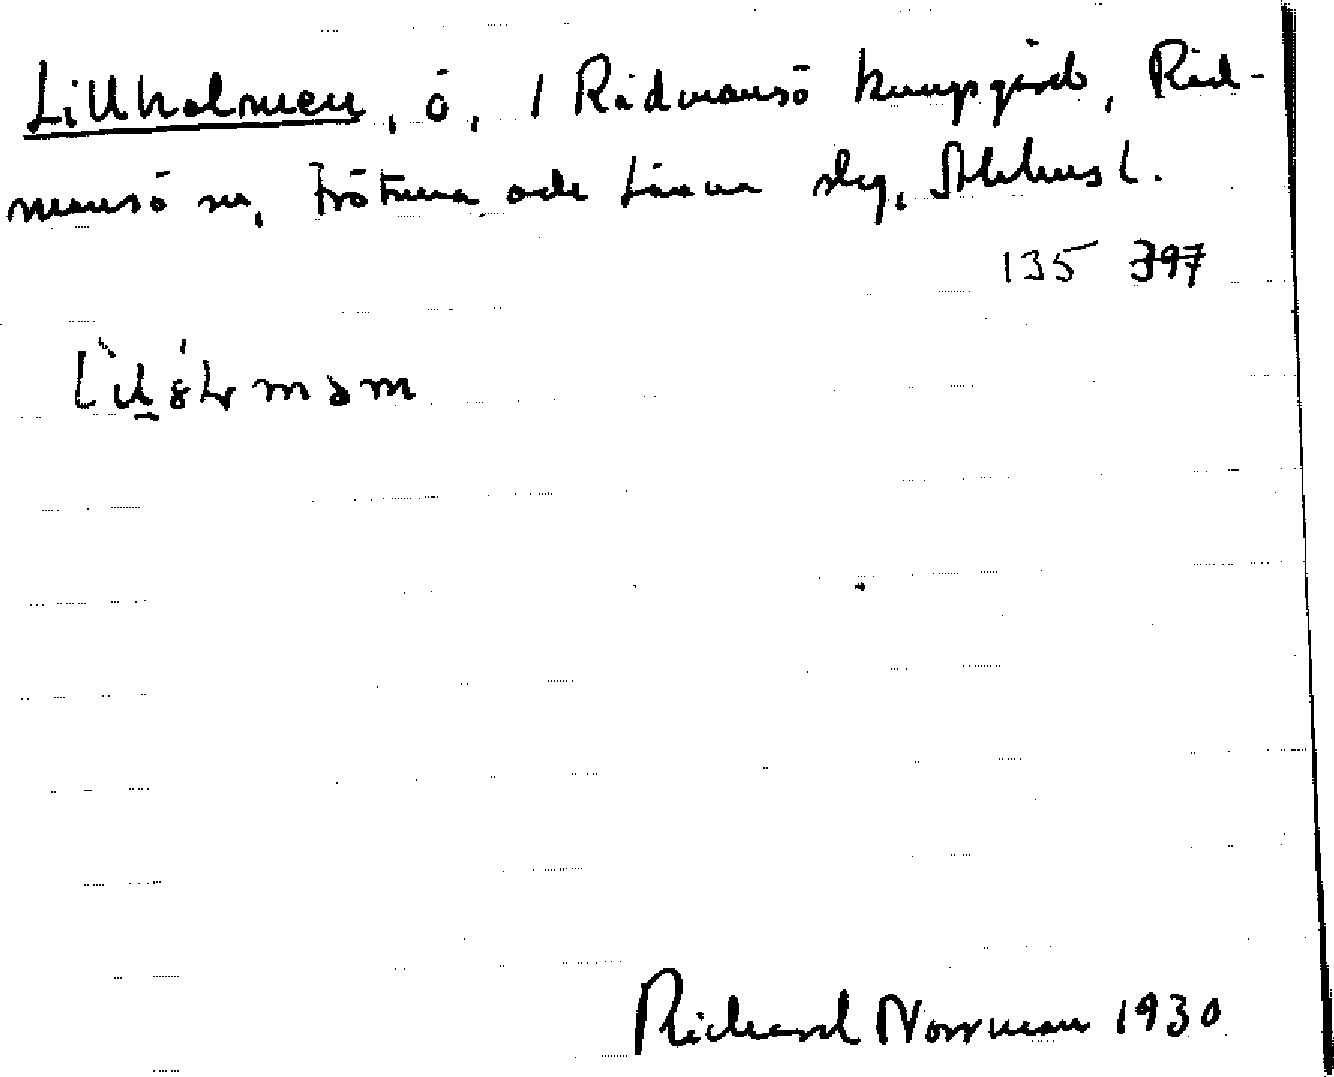 Lillholmen, ö, 1 Rådmansö kungsgård, Råd-
mansö sn, Frötuna och Länna slg, Sthlms l.
135 797
Richard Norrman 1930